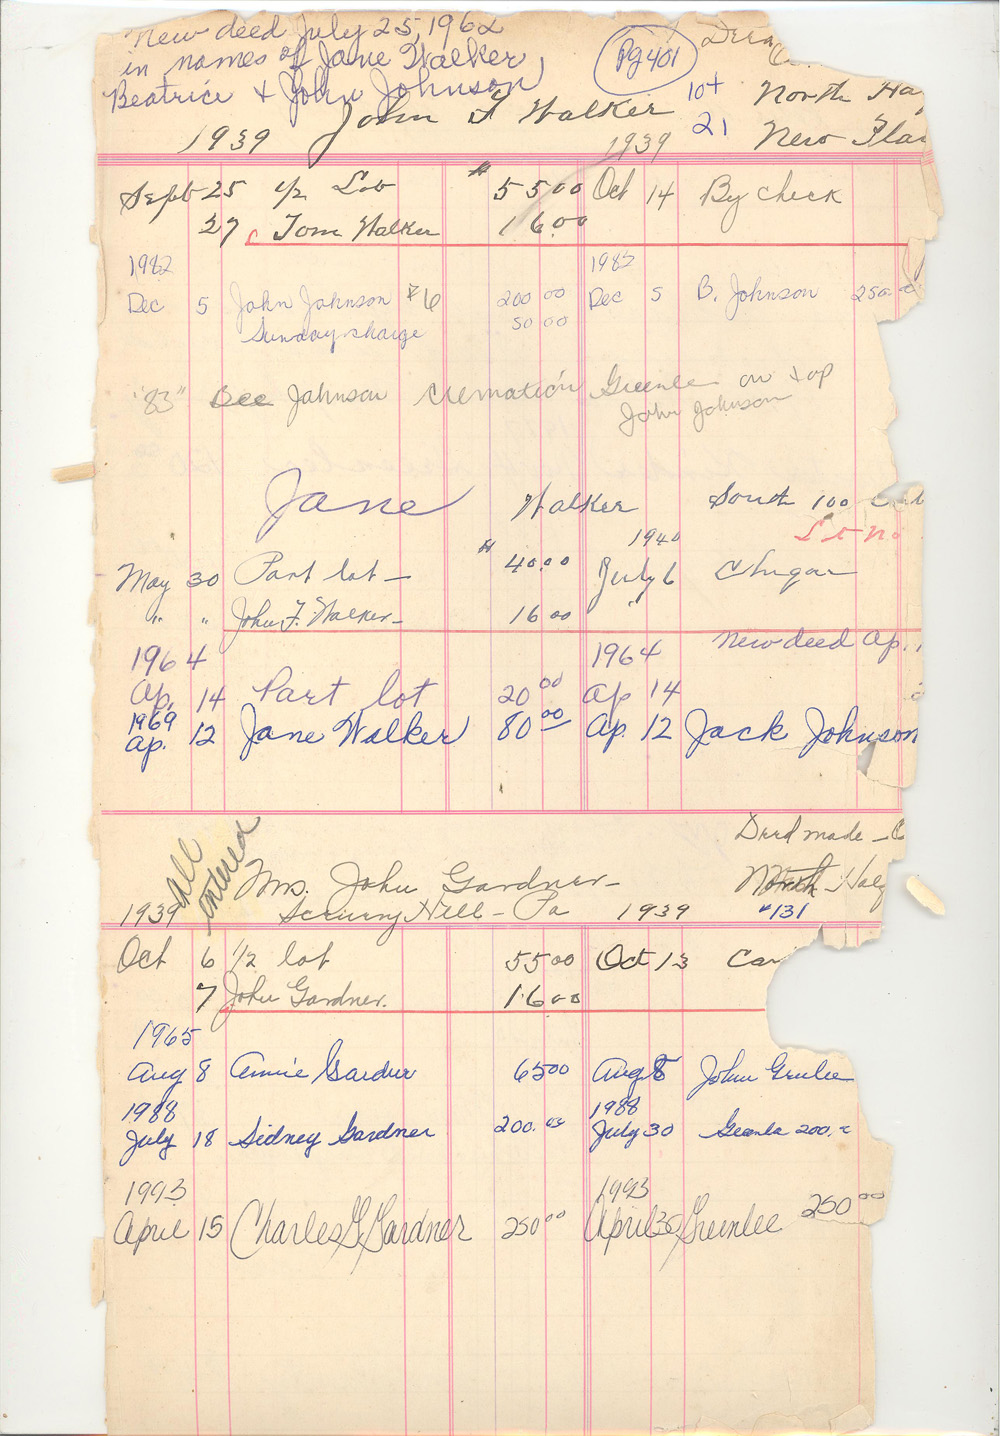 New deed July 25, 1962
in names of Jane Walker,
Beatrice & John Johnson
Pg 401
John F Walker
10+ North Ha
21 New Plan
1939 1939
Sept 25 1/2 Lot # 55 00 Oct 14 By check
27 c Tom Walker 16.00
1982 1982
Dec 5 John Johnson #6 200 00 Dec 5 B. Johnson 250.
Sunday charge 50 00
"83" Bee Johnson Cremation Greenlee on top
John Johnson
Jane Walker South 100
Lot No
1940
May 30 Part lot — # 40.00 July 6 Chugar
" " John F. Walker — 16 00 "
1964 1964 New deed Ap.
Ap. 14 Part lot 20 00 Ap 14
1969
Ap. 12 Jane Walker 80 00 Ap. 12 Jack Johnson
Deed made —
All entered
Mrs. John Gardner — North Half
Scenery Hill — Pa
1939 1939 #131
Oct 6 1/2 lot 55 00 Oct 13
7 John Gardner. 16 00
1965
Aug 8 Annie Gardner 65 00 Aug 8 John Greenlee
1988 1988
July 18 Sidney Gardner 200. 00 July 30 Greenlee 200.
1993 1993
April 15 Charles G. Gardner 250 00 April 30 Greenlee 250 00